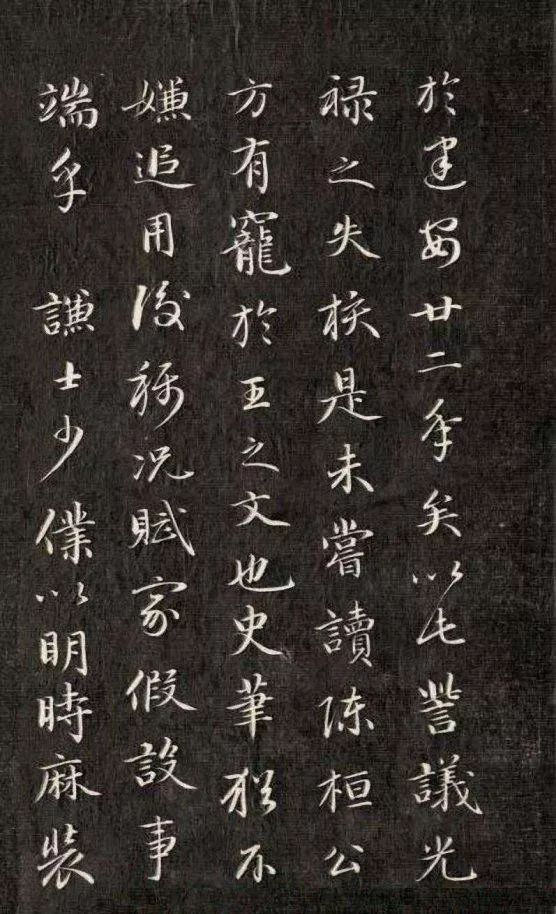 於建安廿二年矣以此訾議光
祿之失核是未嘗讀陳桓公
方有寵於王之文也史筆猶不
嫌追用後稱況賦家假設事
端乎 謙士少僕以明時麻裝